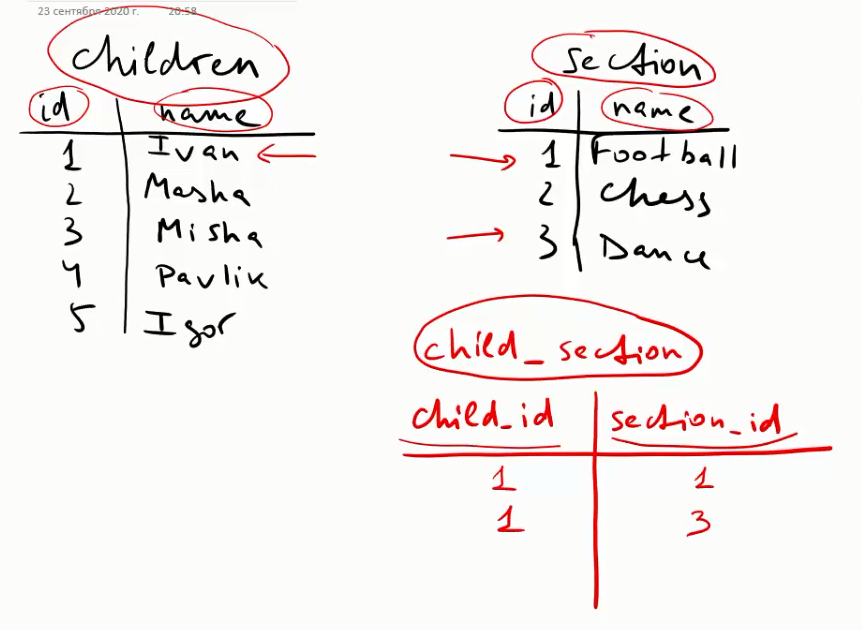 23 сентября 2020 г. 20:58
children
id name
1 Ivan
2 Masha
3 Misha
4 Pavlik
5 Igor
section
id name
1 Football
2 Chess
3 Dance
child_section
child_id section_id
1 1
1 3